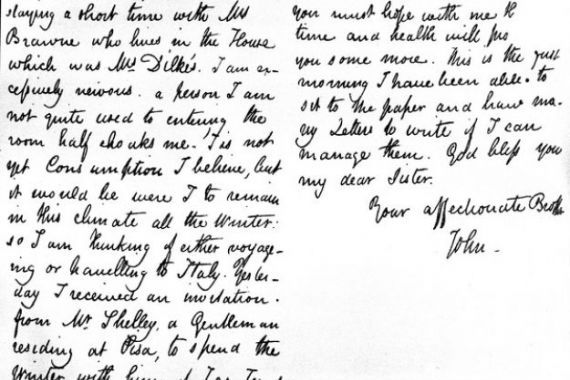 staying a short time with Mrs
Brawne who lives in the House
which was Mrs Dilke's. I am ex-
cessively nervous. a person I am
not quite used to entering the
room half choaks me. 'Tis not
yet Consumption I believe, but
it would be were I to remain
in this climate all the Winter:
so I am thinking of either voyag-
ing or travelling to Italy. Yester-
day I received an invitation.
from Mr Shelley, a Gentleman
residing at Pisa, to spend the
Winter with him
you must hope with me th
time and health will pro
you some more. This is the first
morning I have been able. to
sit to the paper and have ma-
ny Letters to write if I can
manage them. God bless you
my dear Sister.
Your affectionate Brother
John -